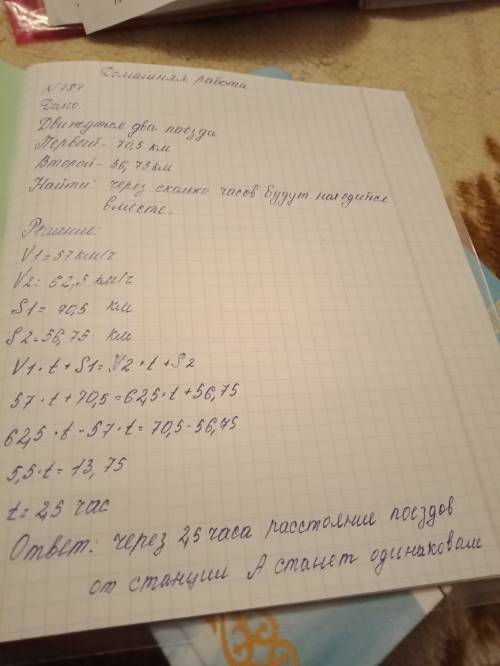 Домашняя работа
N 787
Дано:
Движутся два поезда
Первый - 70,5 км
Второй - 56,75 км
Найти: через сколько часов будут находится
вместе.
Решение:
V1 = 57 км/ч
V2 = 62,5 км/ч
S1 = 70,5 км
S2 = 56,75 км
V1 · t + S1 = V2 · t + S2
57 · t + 70,5 = 62,5 · t + 56,75
62,5 · t - 57 · t = 70,5 - 56,75
5,5 · t = 13,75
t = 2,5 час
Ответ: через 2,5 часа расстояние поездов
от станции А станет одинаковым